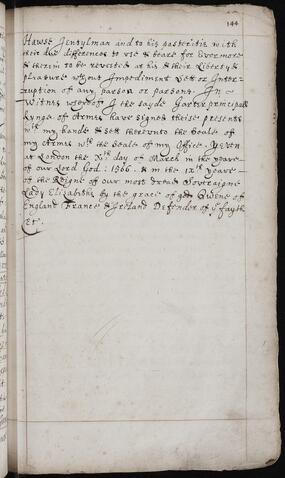 144
Hawse Jentylman and to his posteritie with
their due differences to use & beare for Evermore
& therein to be revested at his & their Liberty &
pleasure wthout Impediment Let or Inter-
ruption of any parson or parsons. In
Witnes wherof I the sayde Garter principall
Kynge of Armes have signed theise presents
wth my hande & sett therunto the Seale of
my Armes wth the Seale of my Office. Yeven
at London the Xth day of March in the yeare
of our Lord God: 1566. & in the ixth yeare
of the Reigne of our most dread Soveraigne
Lady Elizabethe by the grace of god Quene of
England France & Ireland Defender of ye fayth
Etc